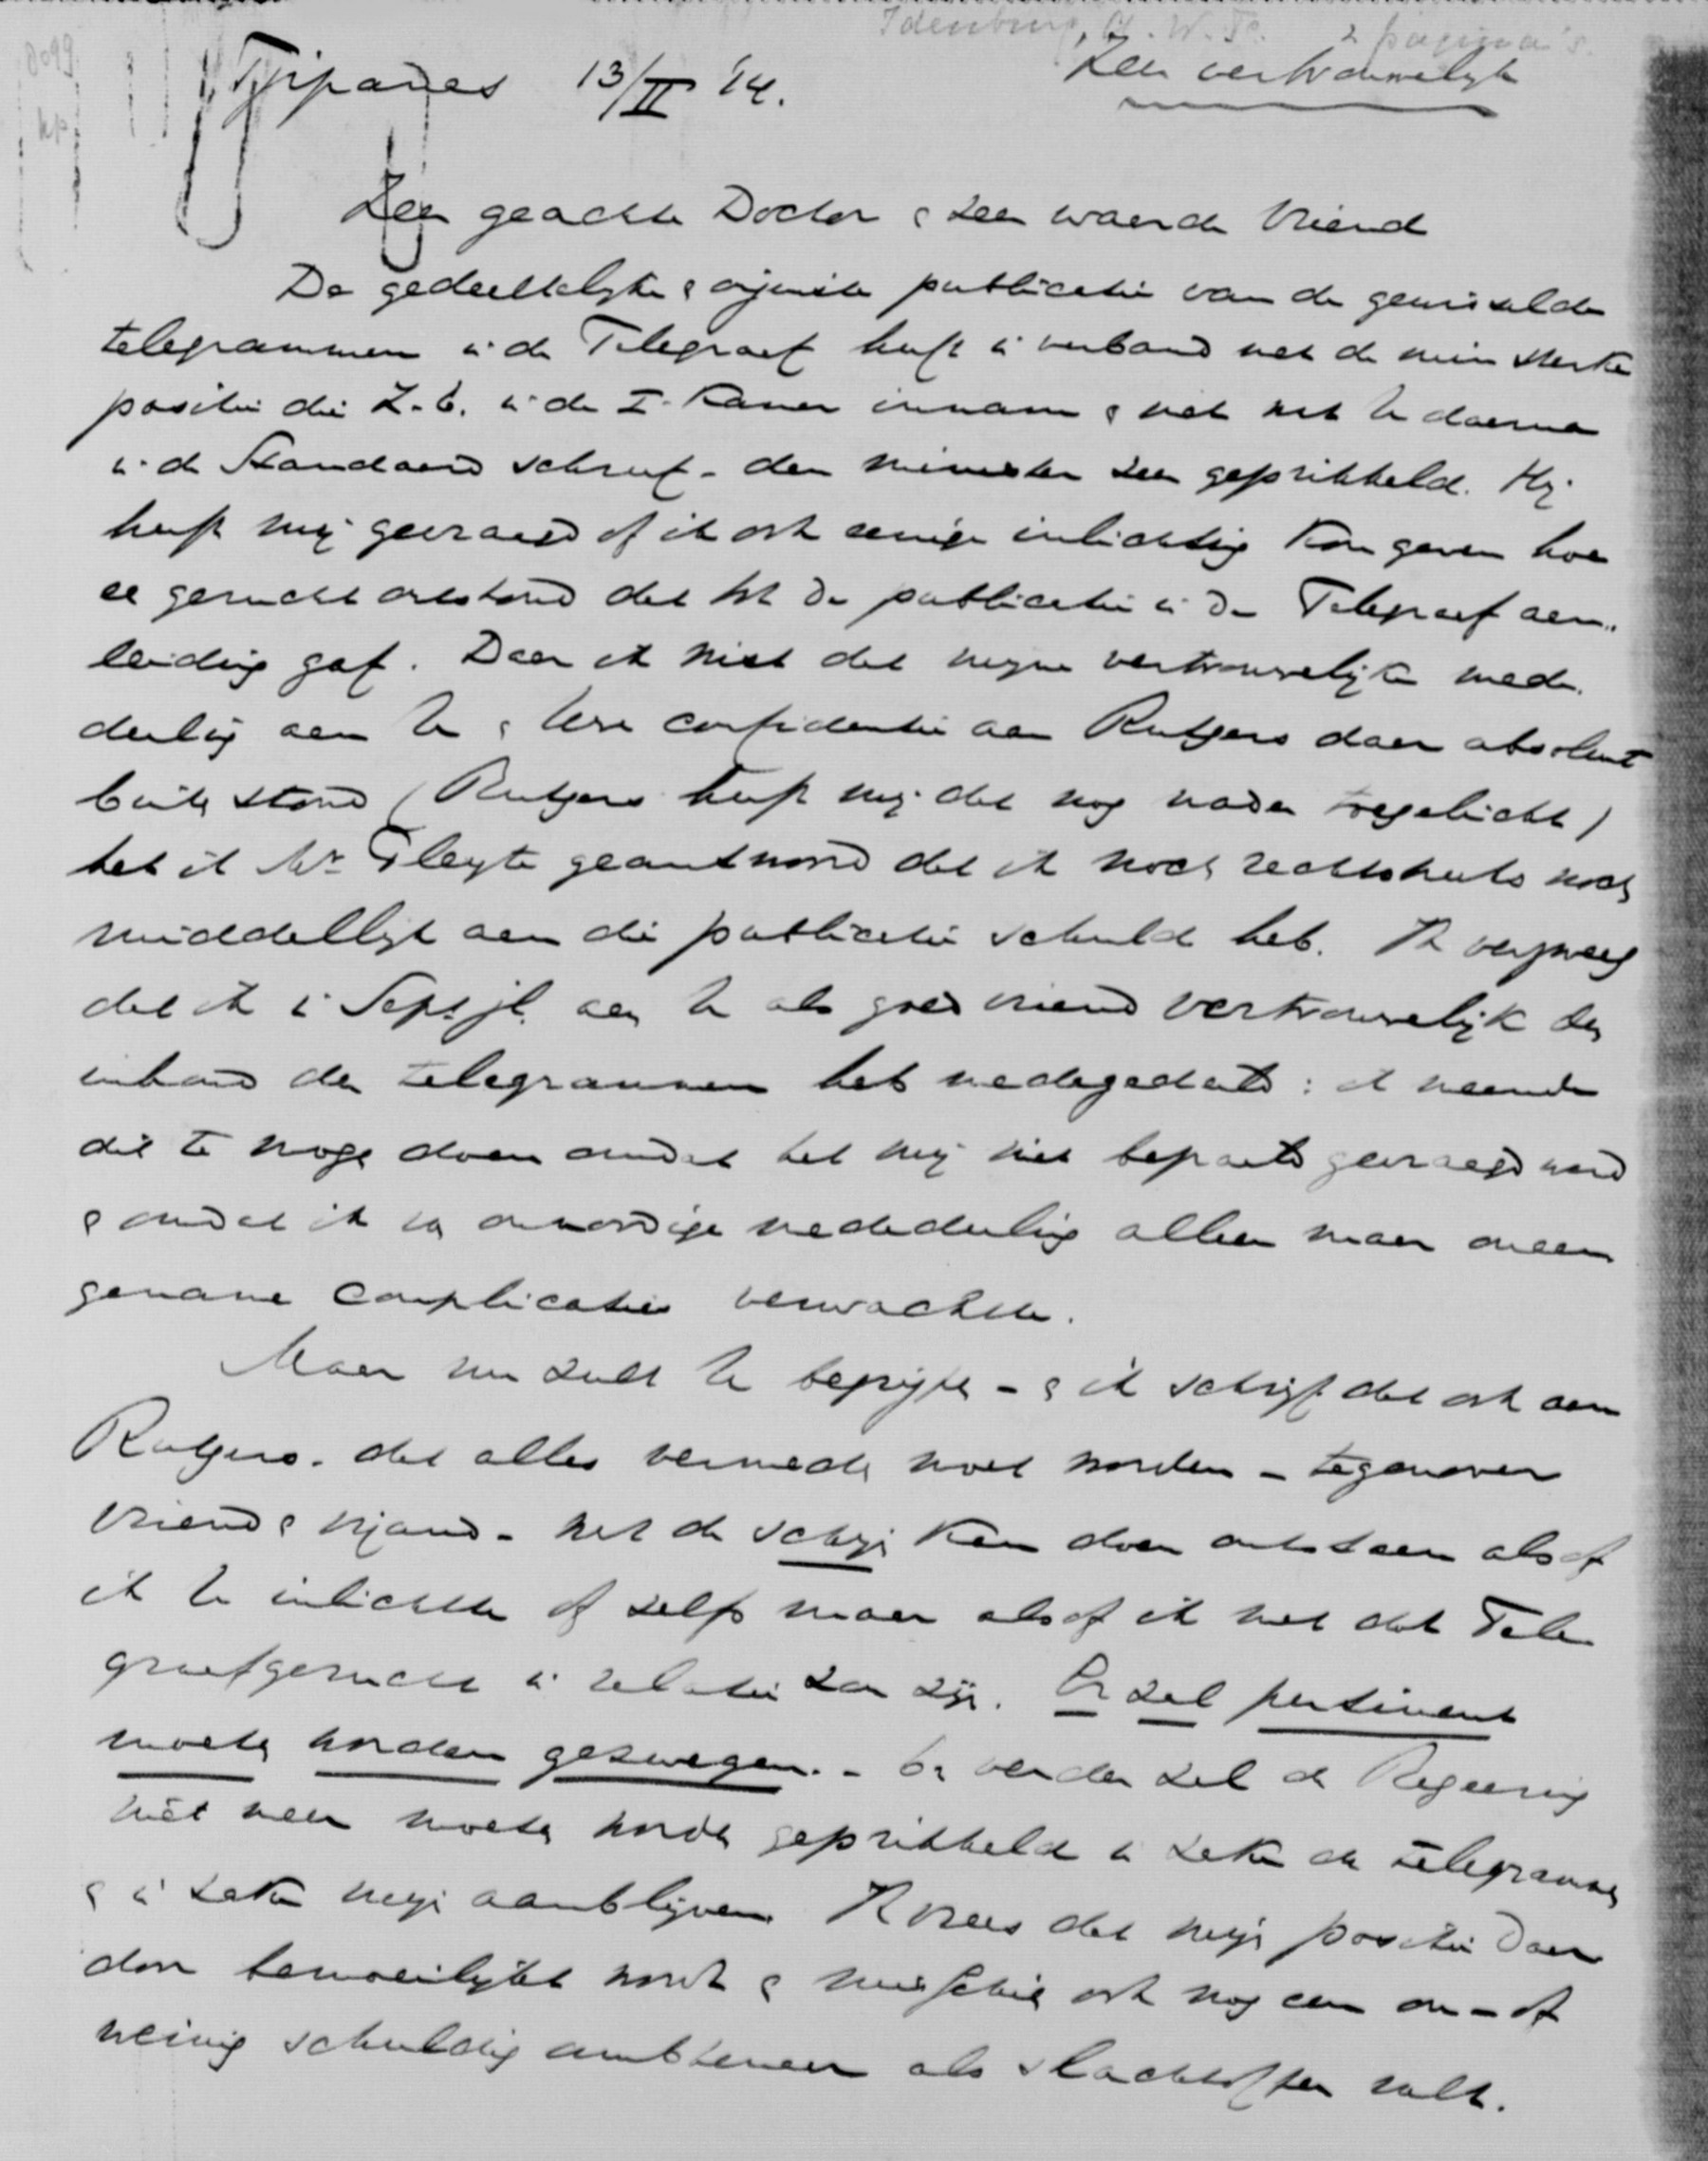 Idenburg, A.W.F. 2 pagina's.
8099
kp
Tjipanas 13/II '14.
Zeer vertrouwelijk
Zeer geachte Doctor & zeer waarde Vriend
De gedeeltelijke & onjuiste publicatie van de gewisselde
telegrammen in de Telegraaf heeft in verband met de min sterke
positie die Z.E. in de I. Kamer innam & met wat U daarna
in de Standaard schreef - den minister zeer geprikkeld. Hij
heeft mij gevraagd of ik ook eenige inlichting kon geven hoe
er gerucht ontstond dat tot de publicatie in de Telegraaf aan-
leiding gaf. Daar ik wist dat mijne vertrouwelijke mede-
deeling aan U & Uwe confidentie aan Rutgers daar absoluut
buiten stond (Rutgers heeft mij dat nog nader toegelicht)
heb ik Mr Pleyte geantwoord dat ik noch rechtstreeks noch
middellijk aan die publicatie schuld heb. Ik verzweeg
dat ik in Sept. jl. aan U als goed vriend vertrouwelijk den
inhoud der telegrammen heb medegedeeld: ik meende
dit te mogen doen omdat het mij niet bepaald gevraagd werd
& omdat ik van onnoodige mededeeling alleen maar onaan-
gename complicaties verwachtte.
Maar nu zult U begrijpen - & ik schrijf dat ook aan
Rutgers - dat alles vermeden moet worden - tegenover
vriend & vijand - wat de schijn kan doen ontstaan alsof
ik U inlichtte of zelfs maar alsof ik met dat Tele-
graafgerucht in relatie zou zijn. Er zal pertinent
moeten worden gezwegen. - En verder zal de Regeering
niet meer moeten worden geprikkeld in zake de telegrammen
& in zake mijn aanblijven. Ik vrees dat mijn positie daar-
door bemoeilijkt wordt & misschien ook nog een on- of
weinig schuldig ambtenaar als slachtoffer valt.